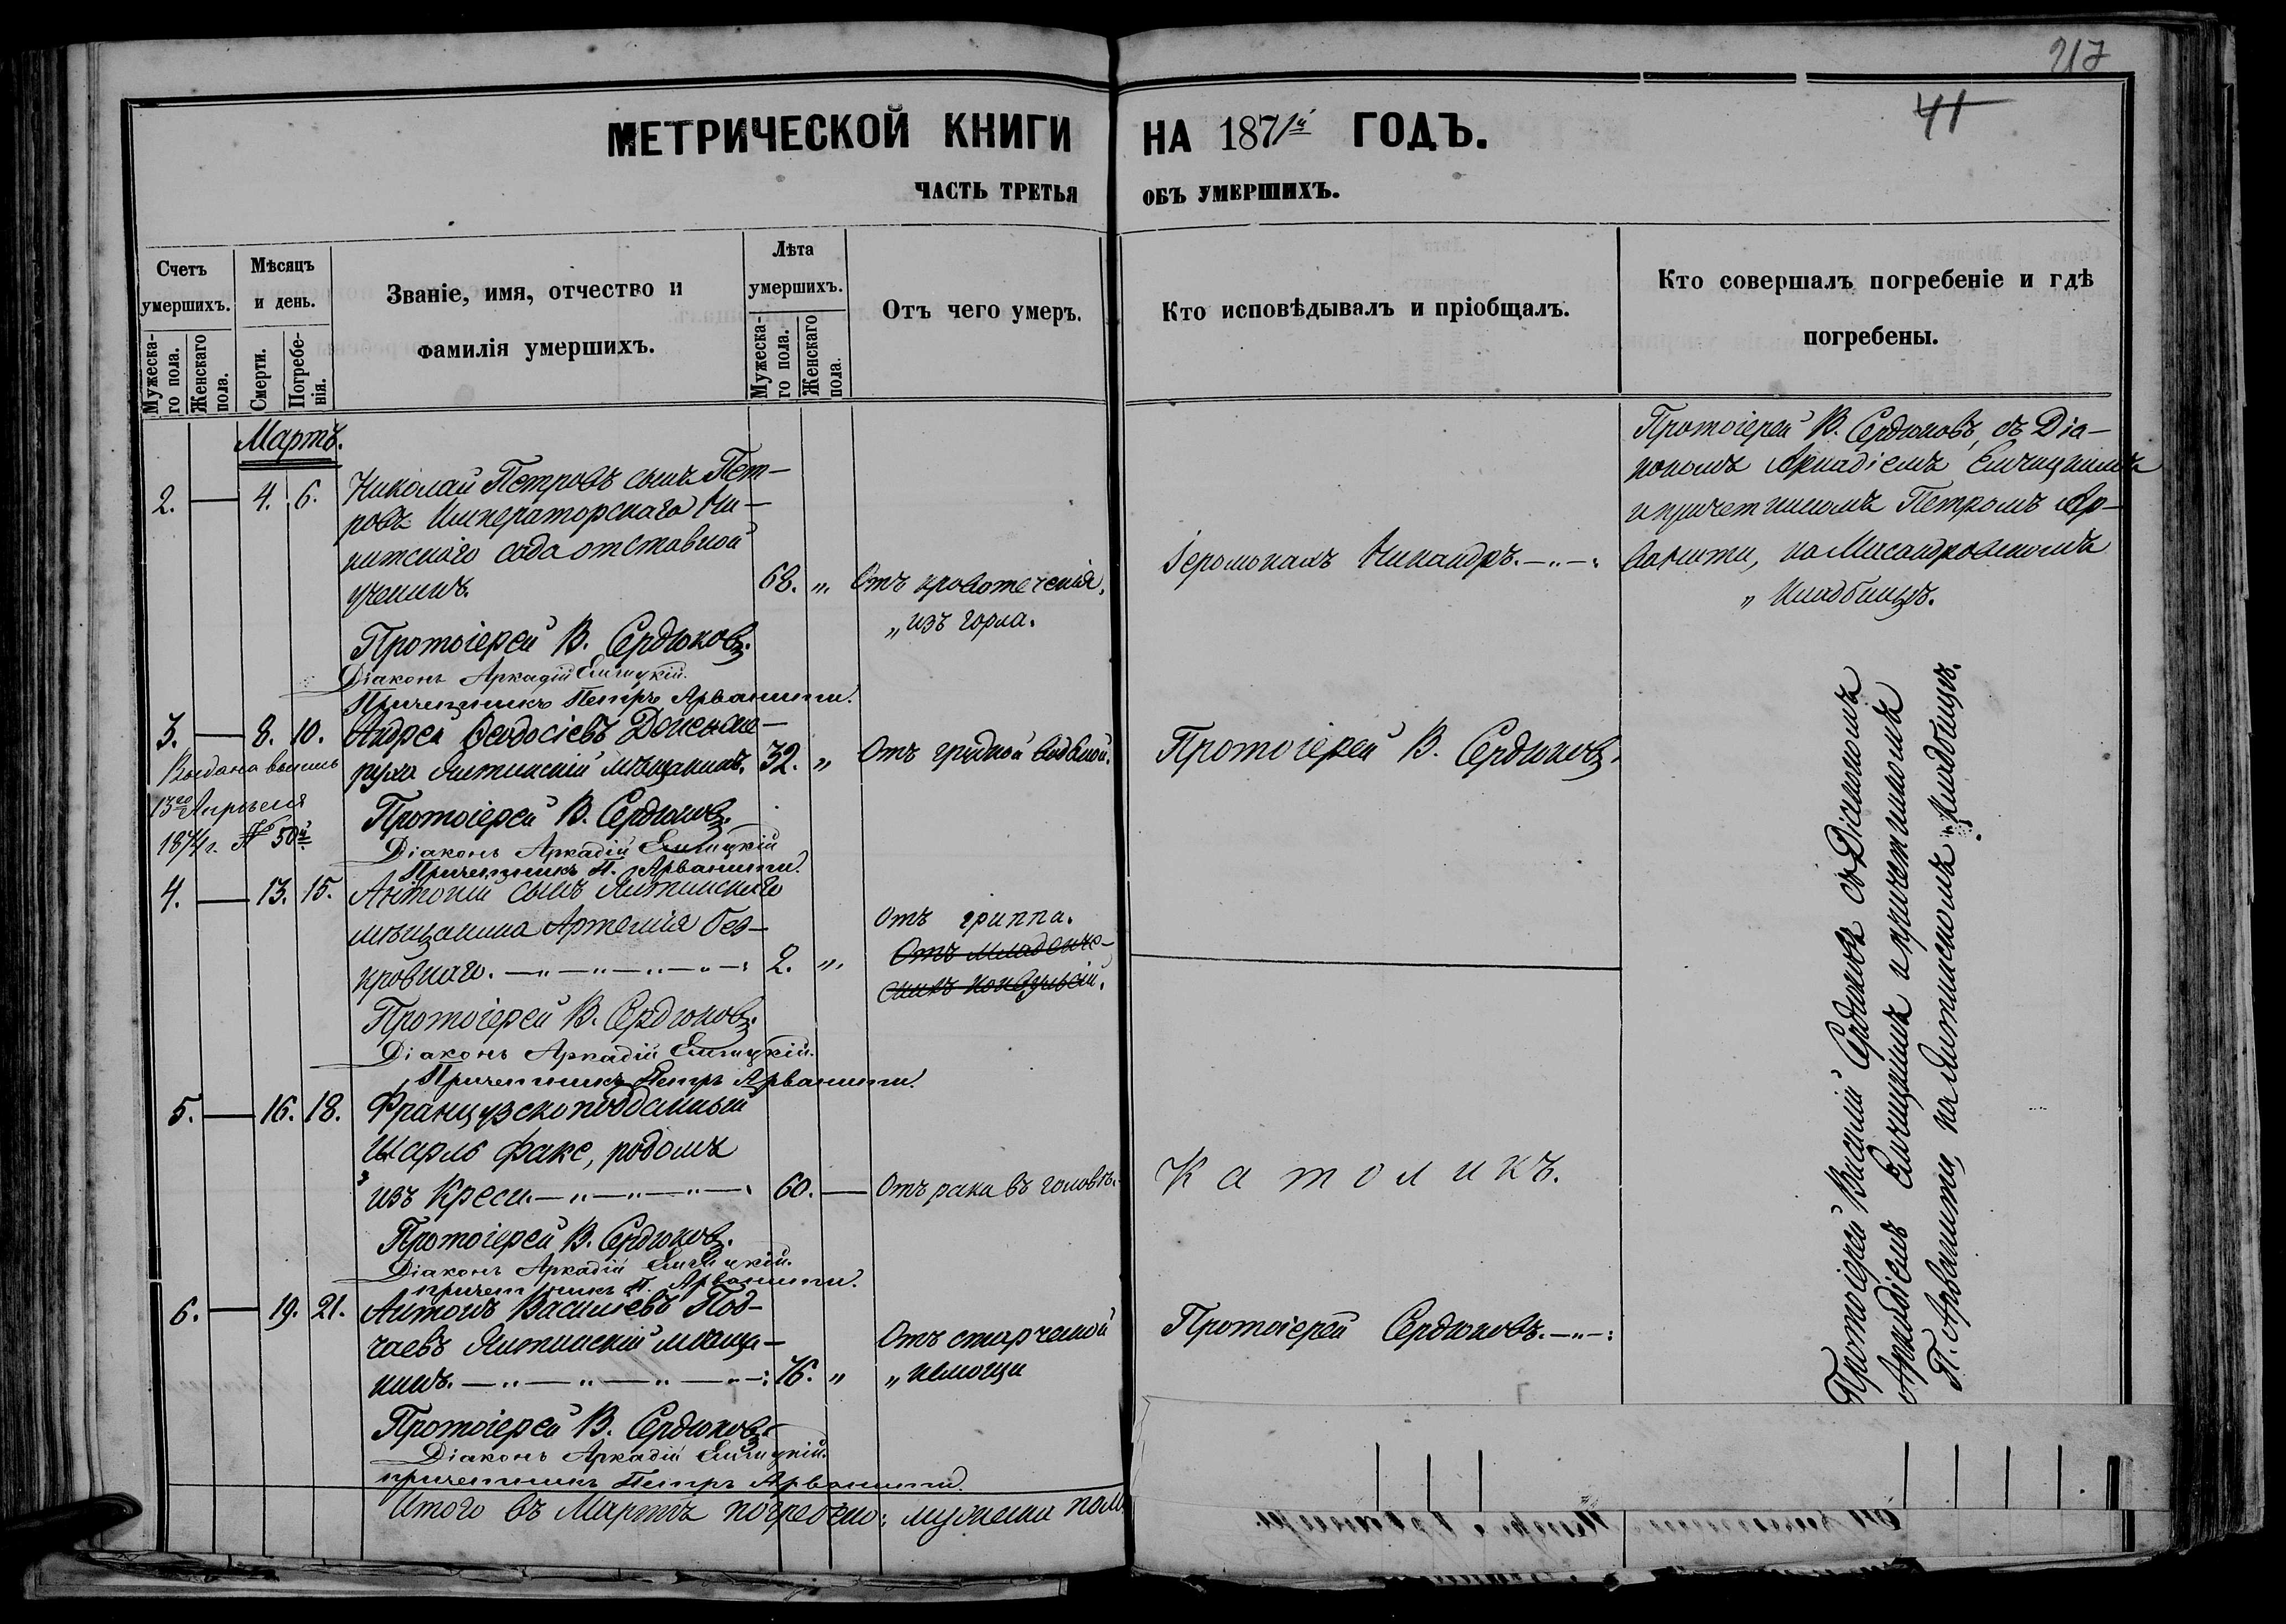 217
41
МЕТРИЧЕСКОЙ КНИГИ НА 1871й ГОДЪ.
ЧАСТЬ ТРЕТЬЯ ОБЪ УМЕРШИХЪ.
Счетъ умершихъ.
Мужеска-го пола.
Женскаго пола.
Мѣсяцъ и день.
Смерти.
Погребе-нія.
Званіе, имя, отчество и
фамилія умершихъ.
Лѣта умершихъ.
Мужеска-го пола.
Женскаго пола.
Отъ чего умеръ.
Кто исповѣдывалъ и пріобщалъ.
Кто совершалъ погребеніе и гдѣ
погребены.
Мартъ.
2. — 4. 6. Николай Петровъ сынъ Пет-
ровъ Императорскаго Ни-
китскаго сада отставной
ученикъ. 68. „ Отъ кровотеченія,
„ изъ горла.
Іеромонахъ Никандръ.
Протоіерей В. Сердюковъ, съ Діа-
кономъ Аркадіемъ
и причетникомъ Петромъ Ар-
ванити, на Масандровскомъ
„ Кладбищѣ.
Протоіерей В. Сердюковъ.
Діаконъ Аркадій
Причетникъ Петръ Арванити.
3. — 8. 10. Андрей Ѳеодосіевъ
Ялтинскій мѣщанинъ. 32. „ Отъ грудной водяной.
Протоіерей В. Сердюковъ.
Выдана выпись
13го Апрѣля
1874г. № 50й
Протоіерей В. Сердюковъ.
Діаконъ Аркадій
Причетникъ П. Арванити.
4. — 13. 15. Антоній сынъ Ялтинскаго
мѣщанина Артемія Без-
кровнаго. 2. „
Отъ гриппа.
Отъ младенче-
скихъ конвульсій.
Протоіерей В. Сердюковъ.
Діаконъ Аркадій
Причетникъ Петръ Арванити.
5. — 16. 18. Французскоподданный
Шарль Факс, родомъ
изъ Креси. 60. — Отъ рака въ головѣ.
Католикъ.
Протоіерей В. Сердюковъ.
Діаконъ Аркадій
причетникъ П. Арванити.
6. — 19. 21. Антонъ Васильевъ Под-
чаевъ Ялтинскій мѣща-
нинъ. 76. „
Отъ старческой
„ немощи
Протоіерей Сердюковъ.
Протоіерей В. Сердюковъ.
Діаконъ Аркадій
причетникъ Петръ Арванити.
Итого въ Мартѣ погребено: мужеска пола
Протоіерей Василій Сердюковъ съ Діакономъ
Аркадіемъ и причетникомъ
П. Арванити, на Ялтинскомъ Кладбищѣ.